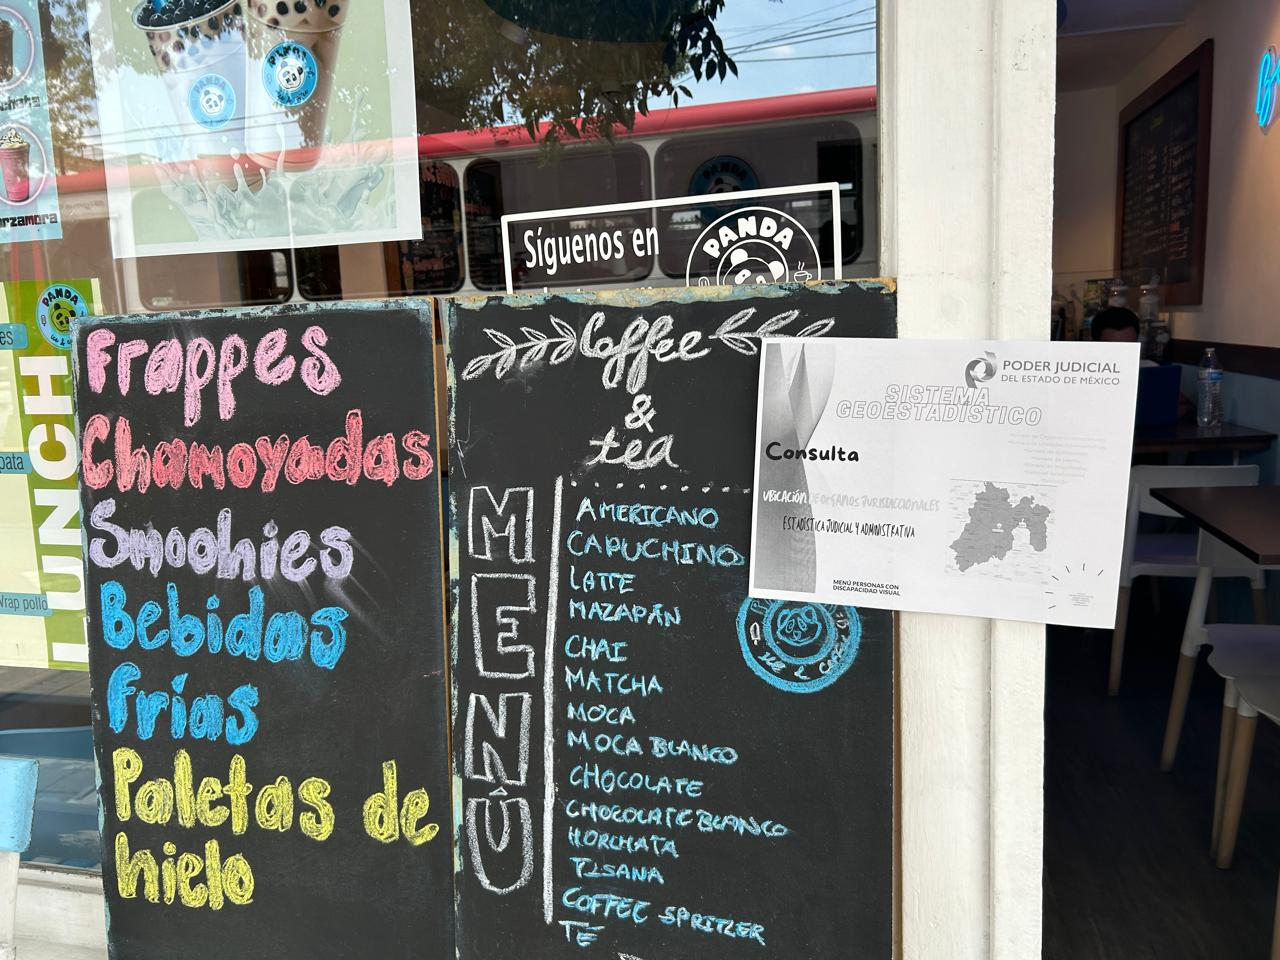 PANDA
PANDA
rzamora
Síguenos en
PANDA
PANDA
LUNCH
pata
Wrap pollo
Frappes
Chamoyadas
Smoohies
Bebidas
frías
Paletas de
hielo
Coffee
&
tea
MENÛ
AMERICANO
CAPUCHINO
LATTE
MAZAPÁN
CHAI
MATCHA
MOCA
MOCA BLANCO
CHOCOLATE
CHOCOLATE BLANCO
HORCHATA
TISANA
COFFEE SPRITZER
TÉ
PODER JUDICIAL
DEL ESTADO DE MÉXICO
SISTEMA
GEOESTADÍSTICO
Consulta
UBICACIÓN DE ÓRGANOS JURISDICCIONALES
ESTADÍSTICA JUDICIAL Y ADMINISTRATIVA
MENÚ PERSONAS CON
DISCAPACIDAD VISUAL